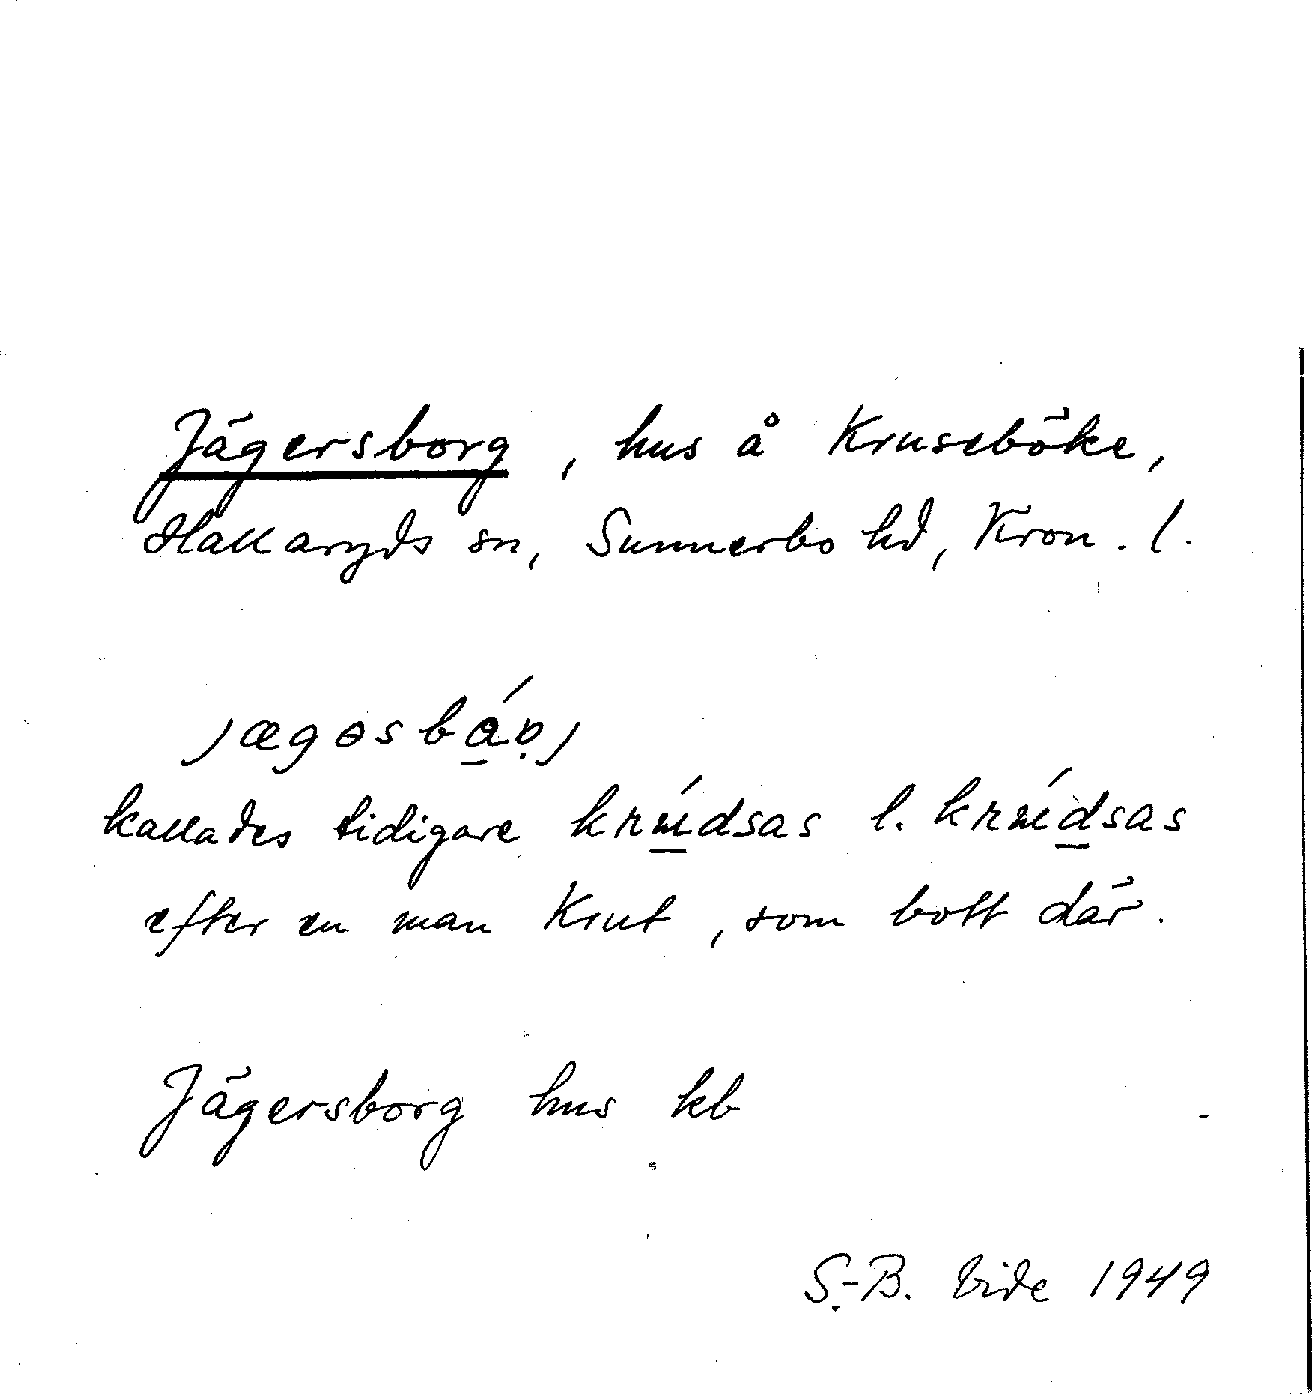 Jägersborg, hus å Kruseböke,
Hallaryds sn, Sunnerbo hd, Kron. l.
kallades tidigare krúdsas l. krúdsas
efter en man Krut, som bott där.
Jägersborg hus kb
S.-B. Vide 1949